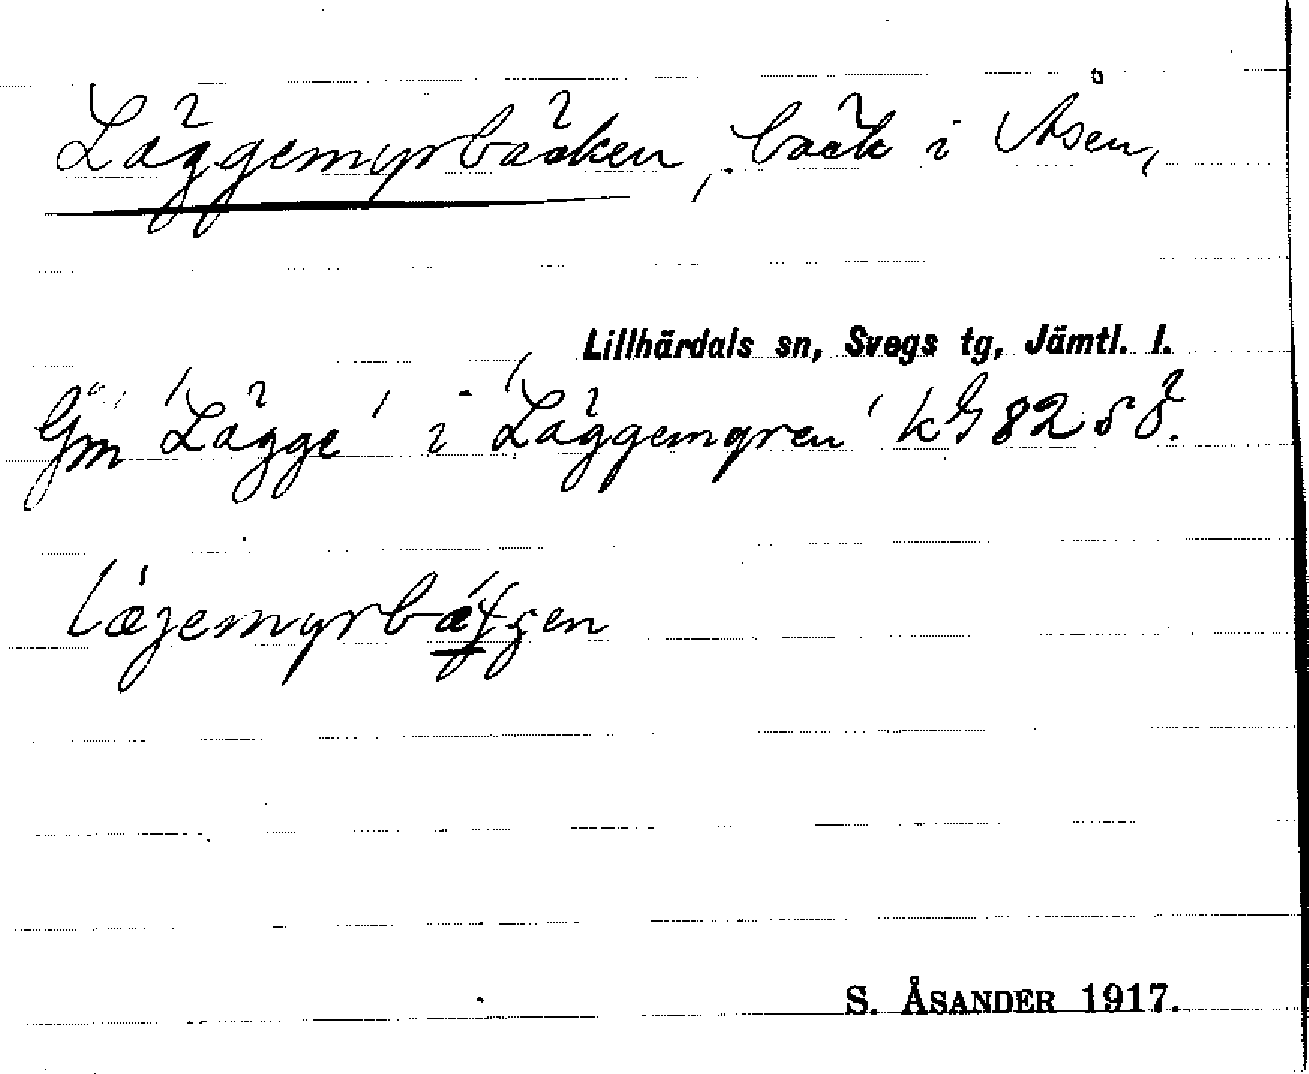 Läggemyrbäcken, bäck i Åsen,
Lillhärdals sn, Svegs tg, Jämtl. l.
Gm 'Lägge' i 'Läggemyren' kG 82 s 8.
læjemyrbæ
S. ÅSANDER 1917.